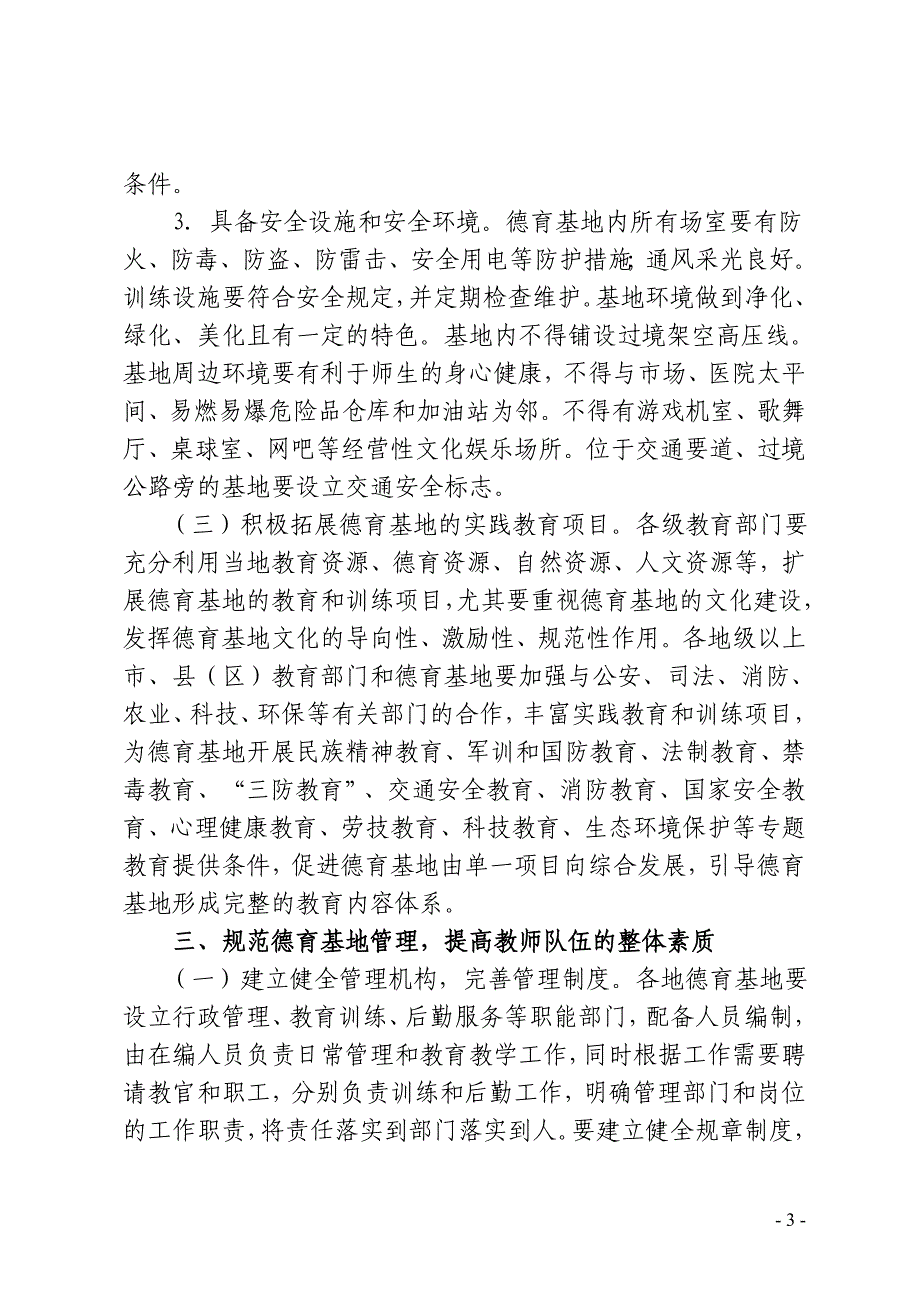 条件。
3. 具备安全设施和安全环境。德育基地内所有场室要有防
火、防毒、防盗、防雷击、安全用电等防护措施；通风采光良好。
训练设施要符合安全规定，并定期检查维护。基地环境做到净化、
绿化、美化且有一定的特色。基地内不得铺设过境架空高压线。
基地周边环境要有利于师生的身心健康，不得与市场、医院太平
间、易燃易爆危险品仓库和加油站为邻。不得有游戏机室、歌舞
厅、桌球室、网吧等经营性文化娱乐场所。位于交通要道、过境
公路旁的基地要设立交通安全标志。
（三）积极拓展德育基地的实践教育项目。各级教育部门要
充分利用当地教育资源、德育资源、自然资源、人文资源等，扩
展德育基地的教育和训练项目，尤其要重视德育基地的文化建设，
发挥德育基地文化的导向性、激励性、规范性作用。各地级以上
市、县（区）教育部门和德育基地要加强与公安、司法、消防、
农业、科技、环保等有关部门的合作，丰富实践教育和训练项目，
为德育基地开展民族精神教育、军训和国防教育、法制教育、禁
毒教育、“三防教育”、交通安全教育、消防教育、国家安全教
育、心理健康教育、劳技教育、科技教育、生态环境保护等专题
教育提供条件，促进德育基地由单一项目向综合发展，引导德育
基地形成完整的教育内容体系。
三、规范德育基地管理，提高教师队伍的整体素质
（一）建立健全管理机构，完善管理制度。各地德育基地要
设立行政管理、教育训练、后勤服务等职能部门，配备人员编制，
由在编人员负责日常管理和教育教学工作，同时根据工作需要聘
请教官和职工，分别负责训练和后勤工作，明确管理部门和岗位
的工作职责，将责任落实到部门落实到人。要建立健全规章制度，
- 3 -